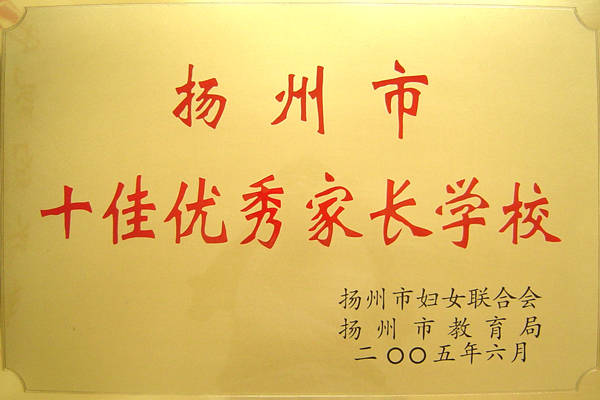 扬州市
十佳优秀家长学校
扬州市妇女联合会
扬州市教育局
二〇〇五年六月